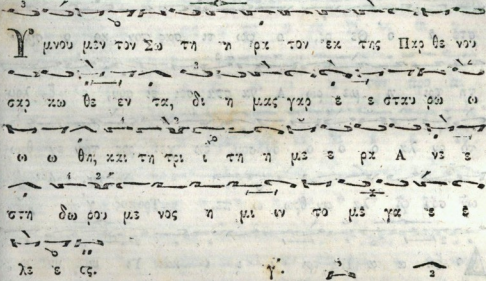 Ὕ μνου μεν τον Σω τη η ρα τον εκ της Παρ θε νου
σαρ κω θε εν τα, δι η μας γαρ ε ε σταυ ρω ω
ω ω θης και τη τρι ι τη η με ε ρα Α νε ε
στη δω ρου με νος η μι ιν το με γα ε ε
λε ε ος. γ΄.